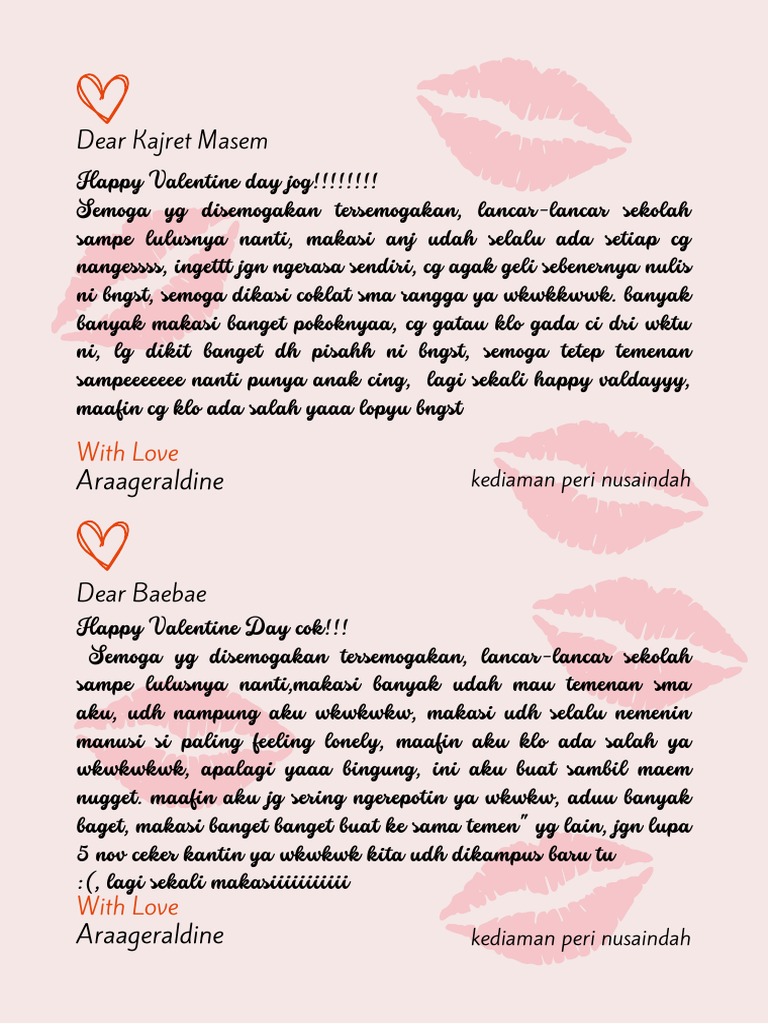 Dear Kajret Masem
Happy Valentine day jog!!!!!!!!
Semoga yg disemogakan tersemogakan, lancar-lancar sekolah
sampe lulusnya nanti, makasi anj udah selalu ada setiap cg
nangessss, ingettt jgn ngerasa sendiri, cg agak geli sebenernya nulis
ni bngst, semoga dikasi coklat sma rangga ya wkwkkwwk. banyak
banyak makasi banget pokoknyaa, cg gatau klo gada ci dri wktu
ni, lg dikit banget dh pisahh ni bngst, semoga tetep temenan
sampeeeeeee nanti punya anak cing, lagi sekali happy valdayyy,
maafin cg klo ada salah yaaa lopyu bngst
With Love
Araageraldine
kediaman peri nusaindah
Dear Baebae
Happy Valentine Day cok!!!
Semoga yg disemogakan tersemogakan, lancar-lancar sekolah
sampe lulusnya nanti,makasi banyak udah mau temenan sma
aku, udh nampung aku wkwkwkw, makasi udh selalu nemenin
manusi si paling feeling lonely, maafin aku klo ada salah ya
wkwkwkwk, apalagi yaaa bingung, ini aku buat sambil maem
nugget. maafin aku jg sering ngerepotin ya wkwkw, aduu banyak
baget, makasi banget banget buat ke sama temen" yg lain, jgn lupa
5 nov ceker kantin ya wkwkwk kita udh dikampus baru tu
:(, lagi sekali makasiiiiiiiiiii
With Love
Araageraldine
kediaman peri nusaindah